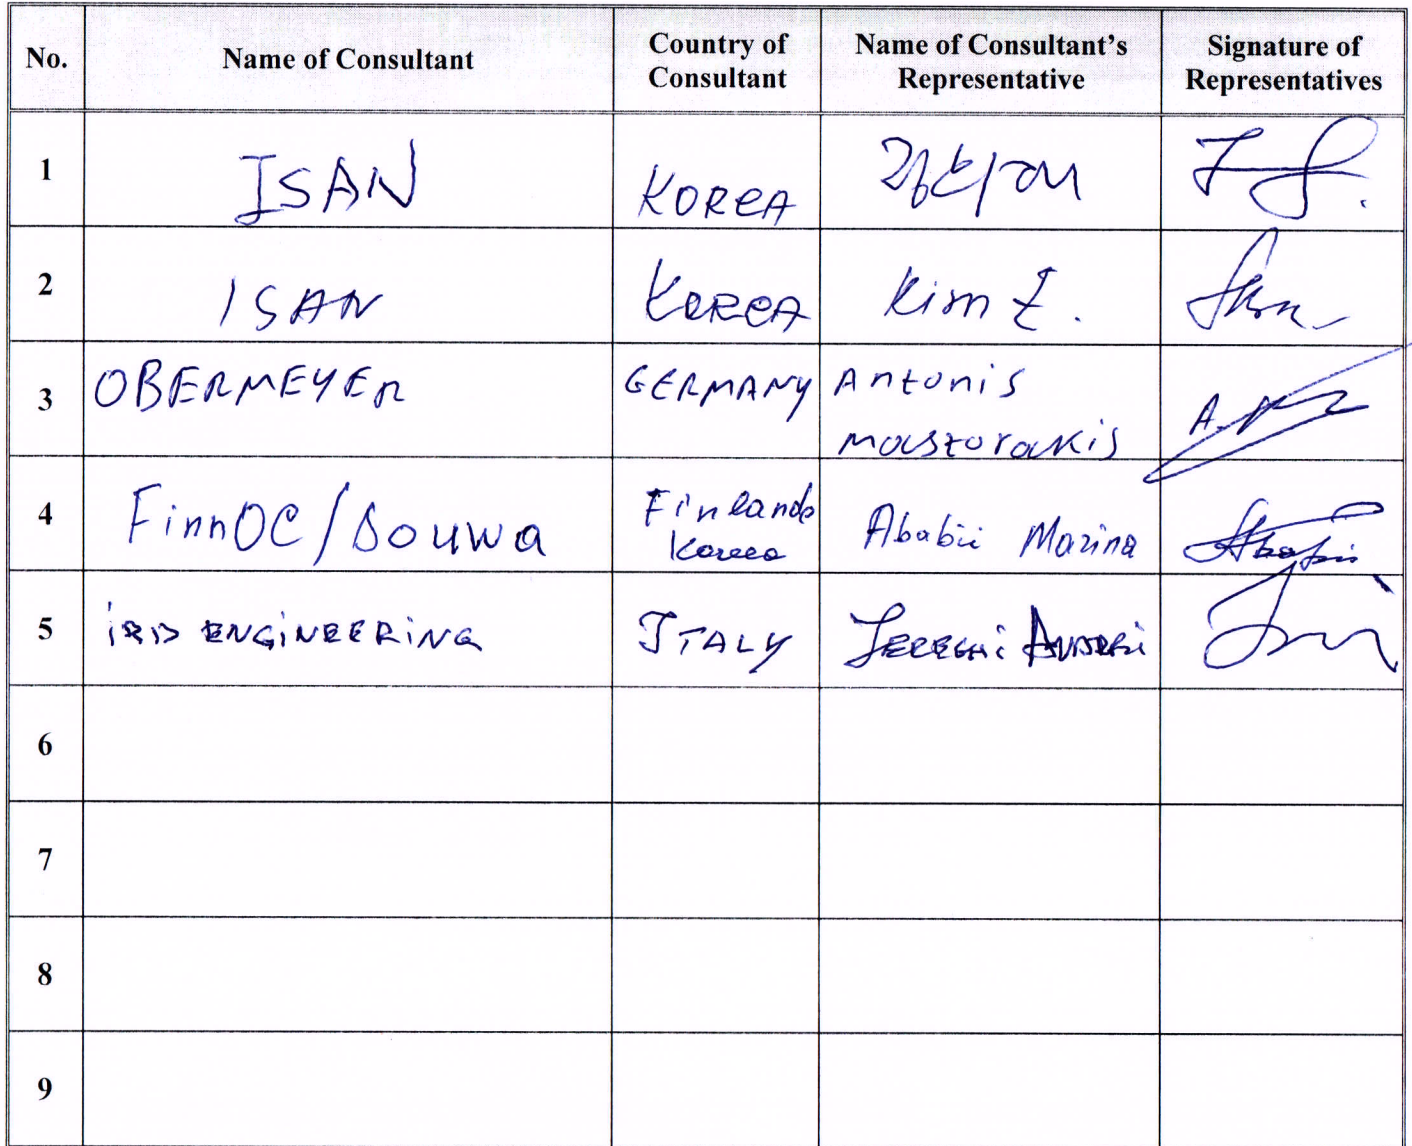 No. Name of Consultant Country of Consultant Name of Consultant's Representative Signature of Representatives
1 ISAN KOREA
2 ISAN KOREA Kim Z.
3 OBERMEYER GERMANY Antonis Mastorakis
4 FinnOC/Douwa Finland Korea Ababii Marina
5 IRD ENGINEERING ITALY Andrei
6
7
8
9